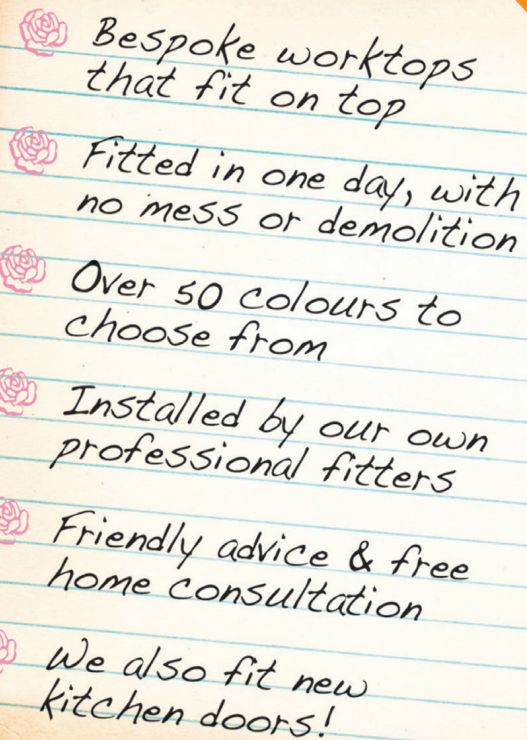 Bespoke worktops
that fit on top
Fitted in one day, with
no mess or demolition
Over 50 colours to
choose from
Installed by our own
professional fitters
Friendly advice & free
home consultation
We also fit new
kitchen doors!